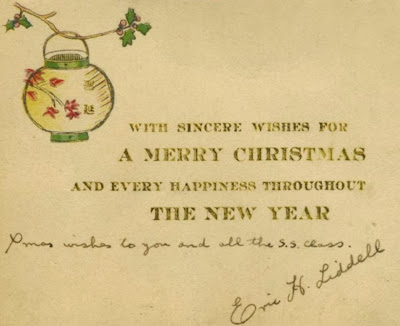 WITH SINCERE WISHES FOR
A MERRY CHRISTMAS
AND EVERY HAPPINESS THROUGHOUT
THE NEW YEAR
Xmas wishes to you and all the S.S. class.
Eric H. Liddell